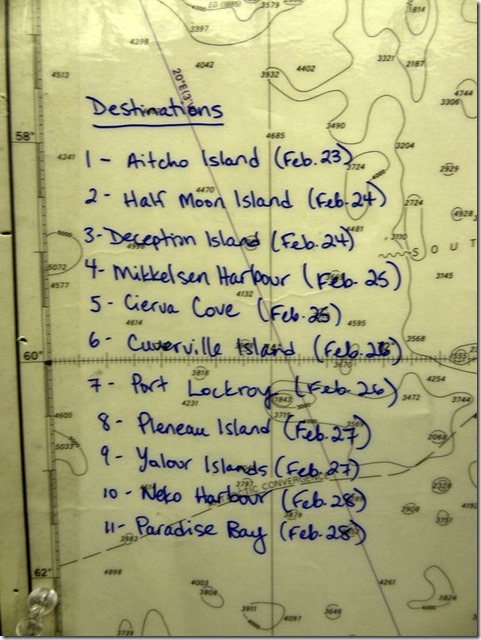 Destinations
1 - Aitcho Island (Feb. 23)
2 - Half Moon Island (Feb. 24)
3 - Deception Island (Feb. 24)
4 - Mikkelsen Harbour (Feb. 25)
5 - Cierva Cove (Feb. 25)
6 - Cuverville Island (Feb. 26)
7 - Port Lockroy (Feb. 26)
8 - Pleneau Island (Feb. 27)
9 - Yalour Islands (Feb. 27)
10 - Neko Harbour (Feb. 28)
11 - Paradise Bay (Feb. 28)
58°
60°
62°
3579
4398
3397
1814
4042
4402
3321
2187
4513
3932
4744
3306
20°E(3'
3490
4685
3204
4341
3724
2929
4470
2724
4928
4481
3110
SOUT
5072
4577
3145
4132
4614
4595
3568
3818
3670
4254
4231
3843
3472
3744
4605
3719
5033
2068
CONVERGENCE
3979
3908
3983
4898
4003
3808
4261
3824
3911
4097
3646
3739